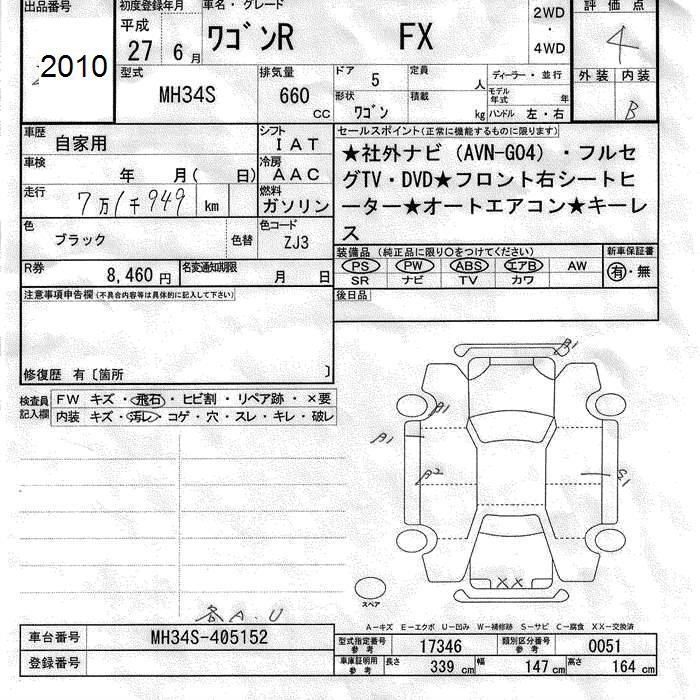 出品番号 初度登録年月 車名・グレード 評価点
2010 平成 27 6月 ワゴンR FX 2WD・4WD 4
型式 MH34S 排気量 660 CC ドア 5 定員 人 ディーラー・並行 外装 内装
形状 ワゴン 積載 kg モデル年式 年 ハンドル 左・右 B
車歴 自家用 シフト IAT セールスポイント(正常に機能するものに限ります)
車検 年 月( 日) 冷房 AAC
走行 7万1千949 km 燃料 ガソリン
★社外ナビ(AVN-G04)・フルセ
グTV・DVD★フロント右シートヒ
ーター★オートエアコン★キーレ
ス
色 ブラック 色替 色コード ZJ3
装備品(純正品に限り○をつけてください) 新車保証書
PS PW ABS エアB AW 有・無
SR ナビ TV カワ
R券 8,460円 名変通知期限 月 日
注意事項申告欄(不具合内容等は具体的に記入して下さい) 後日品
修復歴 有〔箇所 〕
検査員記入欄 FW キズ・飛石・ヒビ割・リペア跡・×要
内装 キズ・汚レ・コゲ・穴・スレ・キレ・破レ
A1
A1
A1
A2
S1
XX
スペア
各A.U
A-キズ E-エクボ U-凹み W-補修跡 S-サビ C-腐食 XX-交換済
車台番号 MH34S-405152
登録番号
型式指定番号 参考 17346 類別区分番号 参考 0051
車庫証明用 参考 長さ 339cm 幅 147cm 高さ 164cm